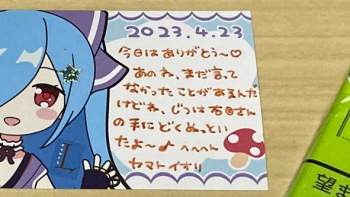 2023.4.23
今日はありがとう〜♡
あのね、まだ言って
なかったことがあるんだ
けどね、じつは右のさん
の手にどくぬっとい
たよ〜♪ へへへん
ヤマトイオリ
望